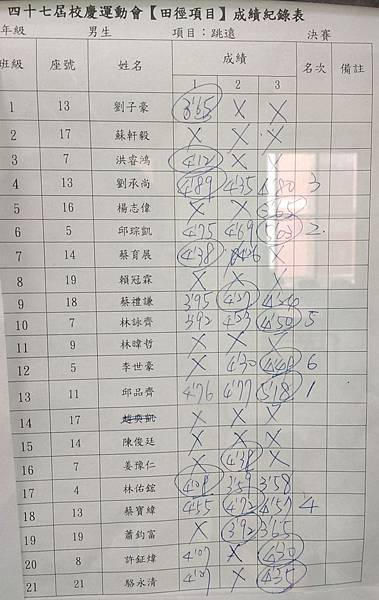 四十七屆校慶運動會【田徑項目】成績紀錄表
年級 男生 項目：跳遠 決賽
班級 座號 姓名 成績 名次 備註
1 2 3
1 13 劉子豪 3'65 X X
2 17 蘇軒毅 X X X
3 7 洪睿鴻 4'12 X X
4 13 劉承尚 4'89 4'35 4'80 3
5 16 楊志偉 X X 3'65
6 5 邱琮凱 4'75 4'69 5'03 2
7 14 蔡育展 4'38 X
8 19 賴冠霖 X X X
9 18 蔡禮謙 3'95 4'27
10 7 林詠齊 3'92 4'53 4'50 5
11 9 林暐哲 X X X
12 5 李世豪 X 4'30 6
13 11 邱品齊 4'76 4'77 5'18 1
14 17 X X X
15 14 陳俊廷 X X X
16 7 姜豫仁 X 4'38 X
17 4 林佑鋐 3'59 3'58
18 13 蔡寶緯 4'55 4'72 4'57 4
19 19 蕭鈞富 X 3'92 3'65
20 8 許鉦煒 4'07 X 4'30
21 21 駱永清 4'27 X 4'35